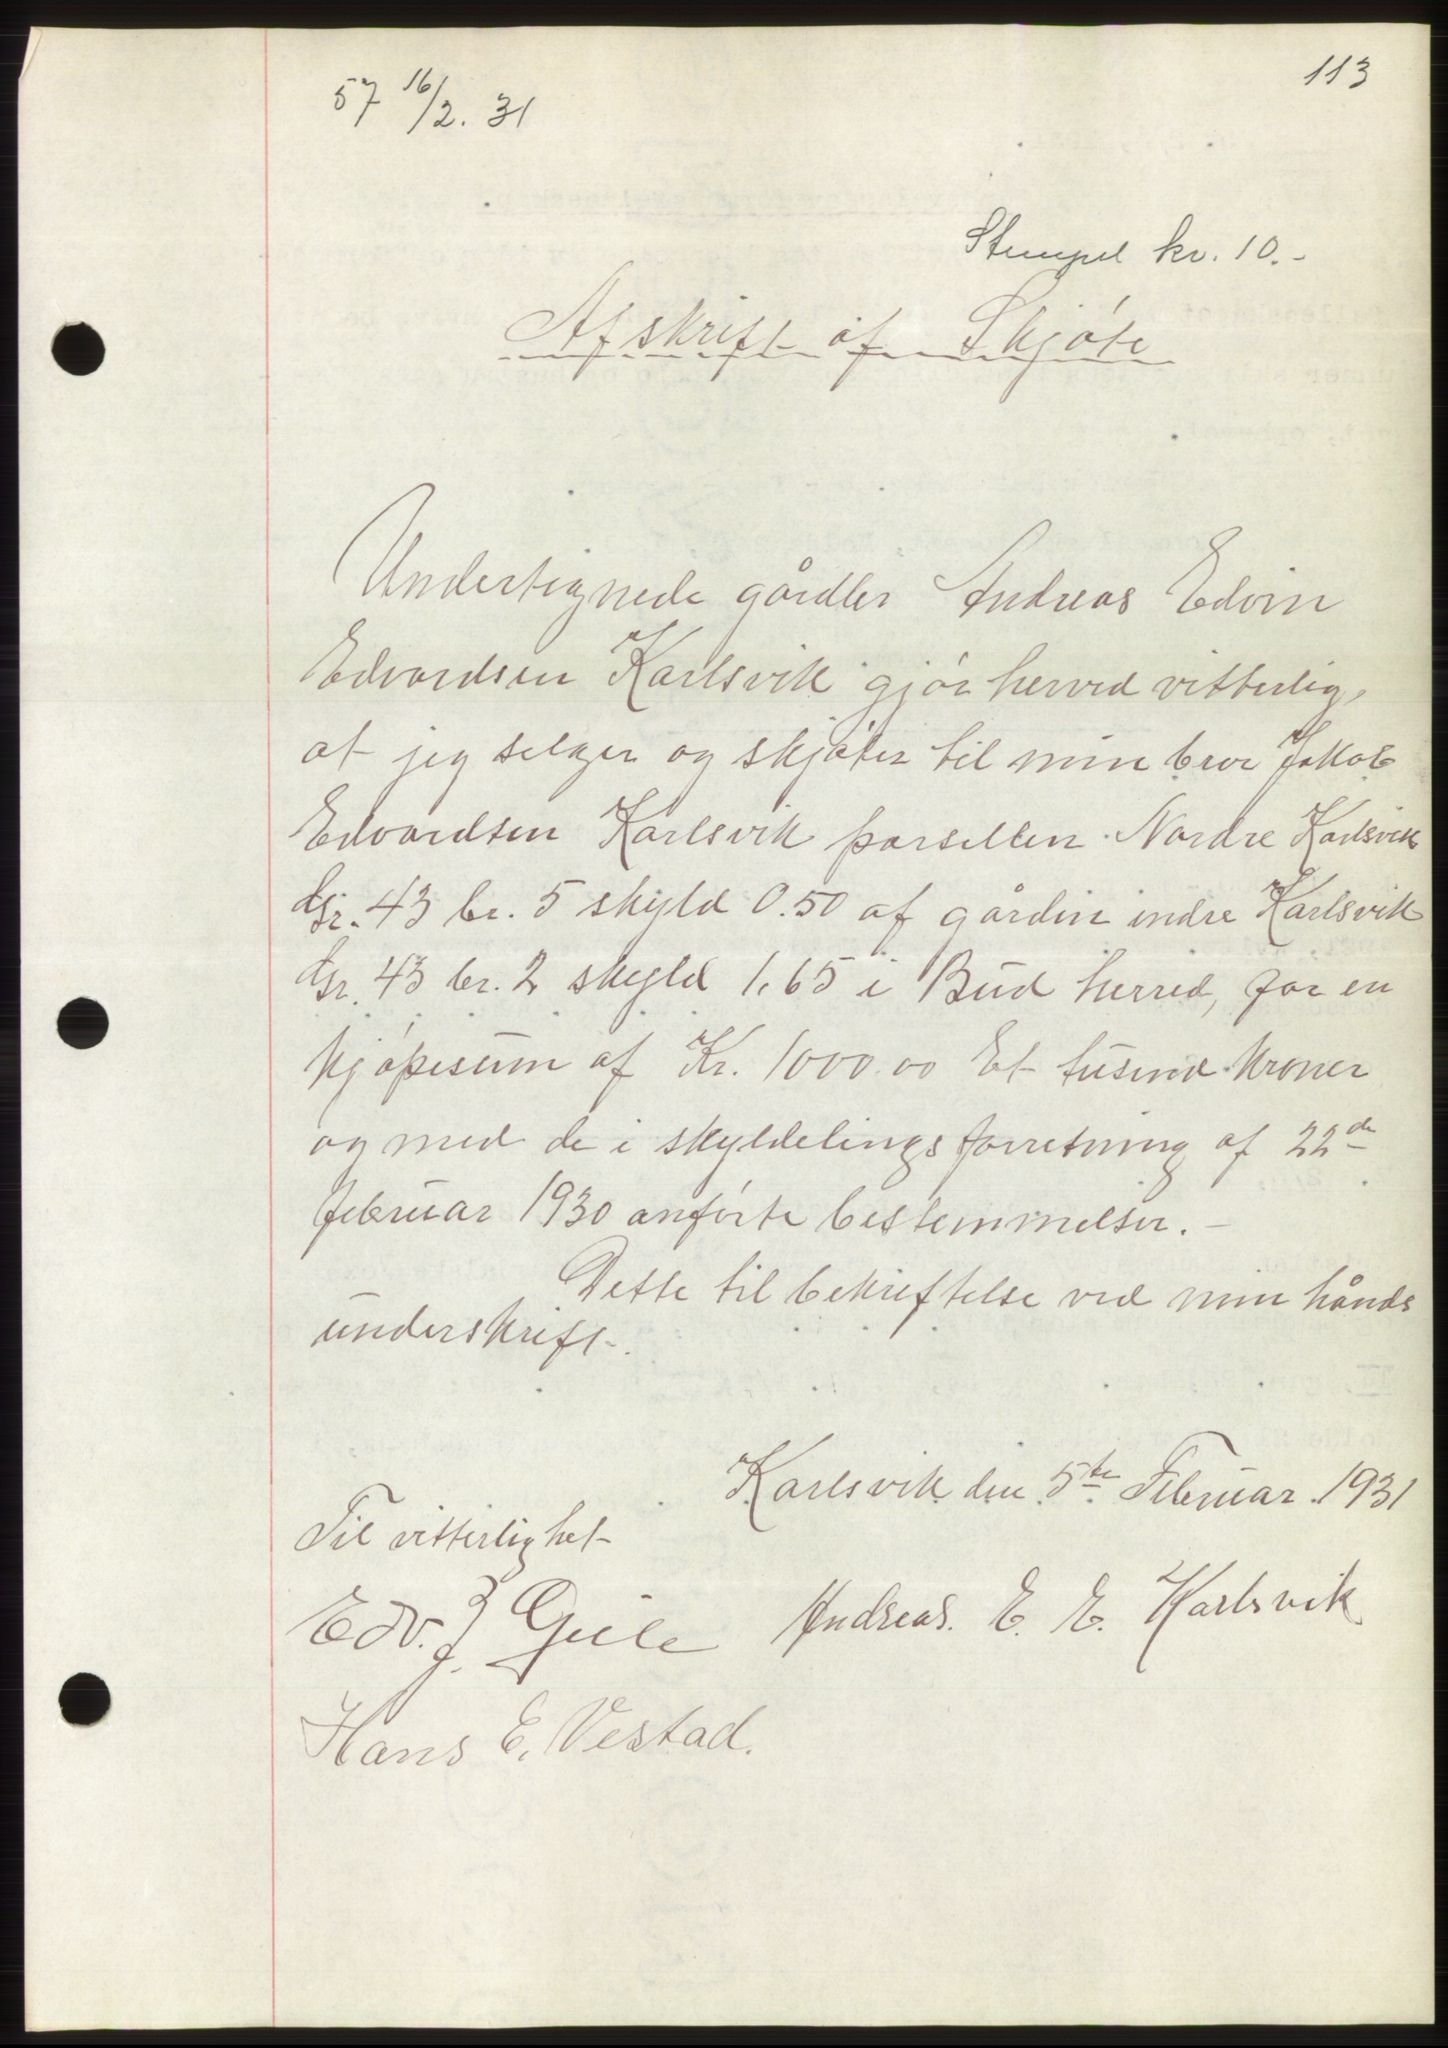 113
57 16/2. 31
Stempel kr. 10.-
Afskrift af Skjøte
Undertignede gårdbr Andreas Edvin
Edvardsen Karlsvik gjør herved vitterlig,
at jeg selger og skjøter til min bror Jakob
Edvardsen Karlsvik parsellen Nordre Karlsvik
Gr. 43 br. 5 skyld 0.50 af gården indre Karlsvik
Gr. 43 br. 2 skyld 1,65 i Bud herred, for en
kjøpesum af Kr. 1000.00 Et tusind kroner
og med de i skyldelingsforretning af 22de
februar 1930 anførte bestemmelser. -
Dette til bekreftelse ved min hånds
underskrift.
Karlsvik den 5te Februar 1931
Til vitterlighet
Edv. J. Andreas. E. E. Karlsvik
Hans E. Vestad.